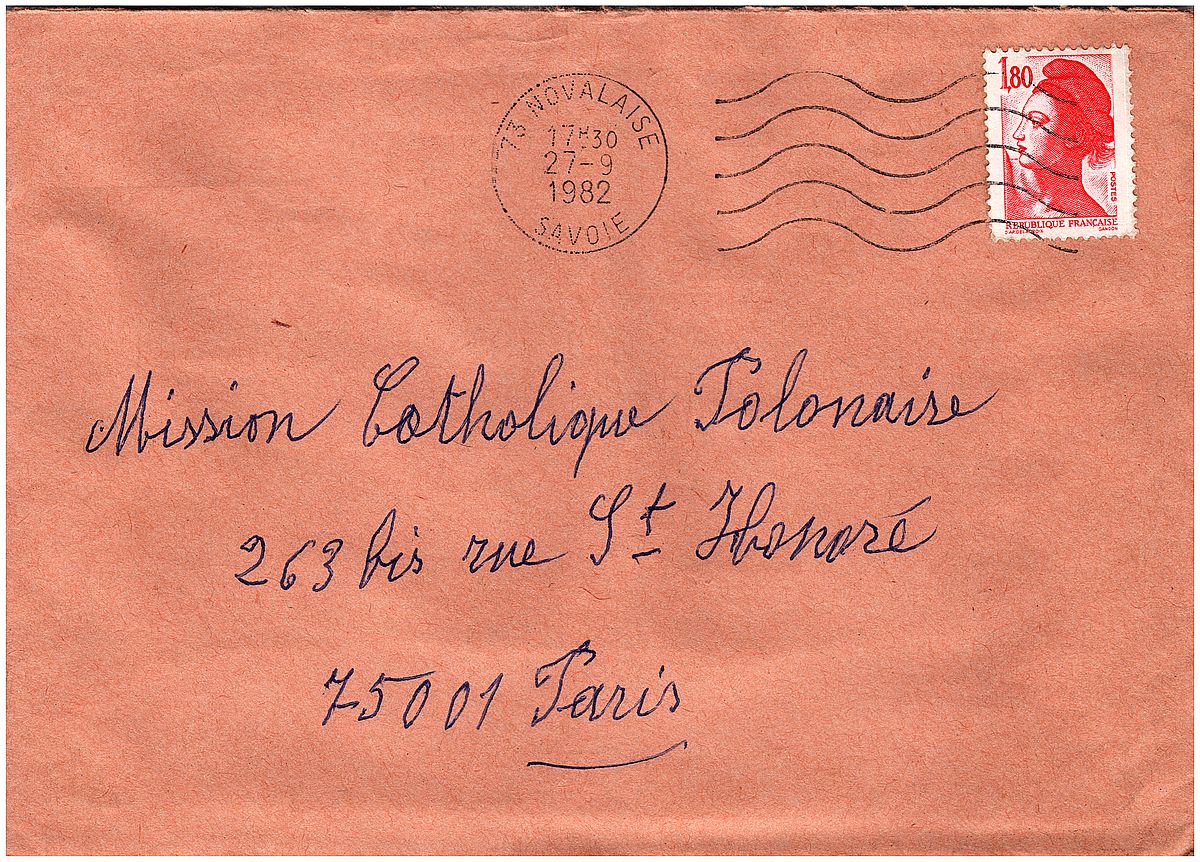 73 NOVALAISE
17H30
27-9
1982
SAVOIE
1,80
POSTES
REPUBLIQUE FRANÇAISE
GANDON
Mission Catholique Polonaise
263 bis rue St Honoré
75001 Paris